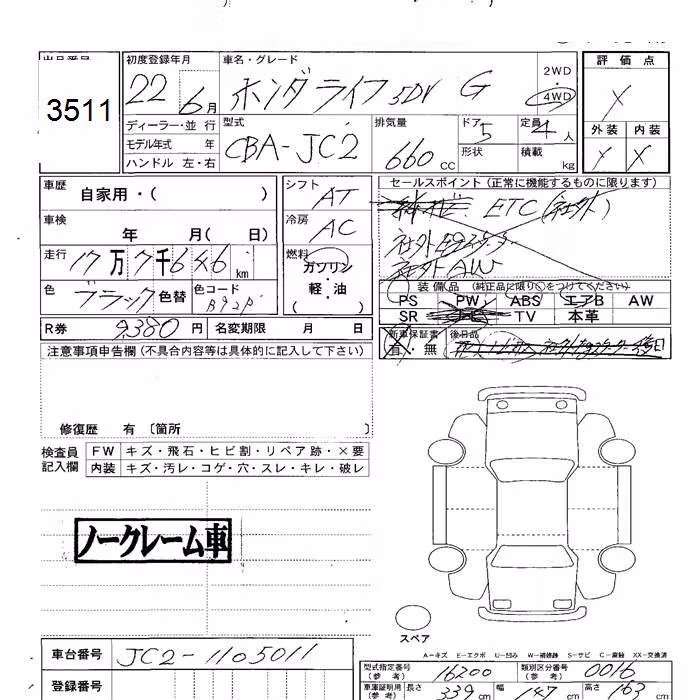 3511
初度登録年月
22 6月
車名・グレード
ホンダ ライフ 5DV G
2WD
・
4WD
評価点
X
ディーラー・並行
モデル年式 年
ハンドル 左・右
型式
CBA-JC2
排気量
660 CC
ドア 5
形状
定員 4 人
積載 kg
外装 内装
X X
車歴
自家用・( )
シフト AT
セールスポイント (正常に機能するものに限ります)
ETC(社外)
社外
社外AW
車検
年 月( 日)
冷房 AC
走行
17万7千646km
燃料
ガソリン
軽・油
色 ブラック 色替
色コード
B92P
装備品 (純正品に限り○をつけてください)
PS PW ABS エアB AW
SR TV 本革
R券 9380円 名変期限 月 日
新車保証書
有・無
後日品
注意事項申告欄(不具合内容等は具体的に記入して下さい)
修復歴 有 〔箇所 〕
検査員
記入欄
FW キズ・飛石・ヒビ割・リペア跡・×要
内装 キズ・汚レ・コゲ・穴・スレ・キレ・破レ
ノークレーム車
スペア
A-キズ E-エクボ U-凹み W-補修跡 S-サビ C-腐蝕 XX-交換済
車台番号 JC2-1105011
登録番号
型式指定番号
(参考)
16200
類別区分番号
(参考)
0016
車庫証明用
(参考)
長さ 339 cm 幅 147 cm 高さ 163 cm